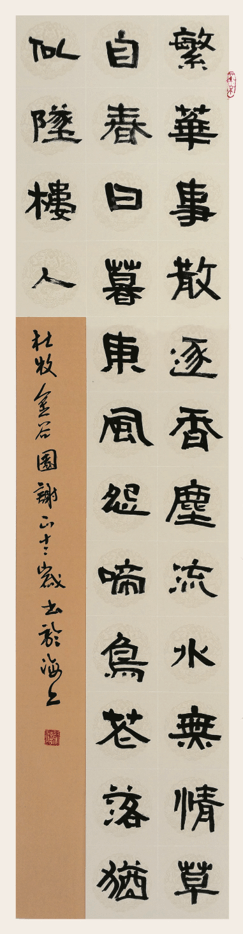 繁華事散逐香塵流水無情草
自春日暮東風怨啼鳥花落猶
似墜樓人
杜牧金谷園謝歲書於海上